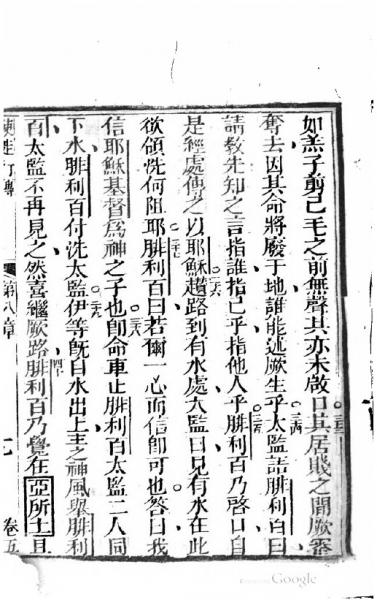 如羔子剪己毛之前無聲其亦未啟口其居賤之間厥審
三三
奪去因其命將廢于地誰能述厥生乎太監語腓利百曰
三四
請教先知之言指誰指己乎指他人乎腓利百乃啓口自
三五
是經處傳之以耶穌趲路到有水處太監曰見有水在此
三六
欲領洗何阻耶腓利百曰若爾一心而信卽可也答曰我
三七
信耶穌基督爲神之子也卽命車止腓利百太監二人同
三八
下水腓利百付洗太監伊等旣自水出上主之神風舉腓利
三九
百太監不再見之然喜繼厥路腓利百乃覺在亞所土且
四十
使徒行傳 第八章 卷五
Google